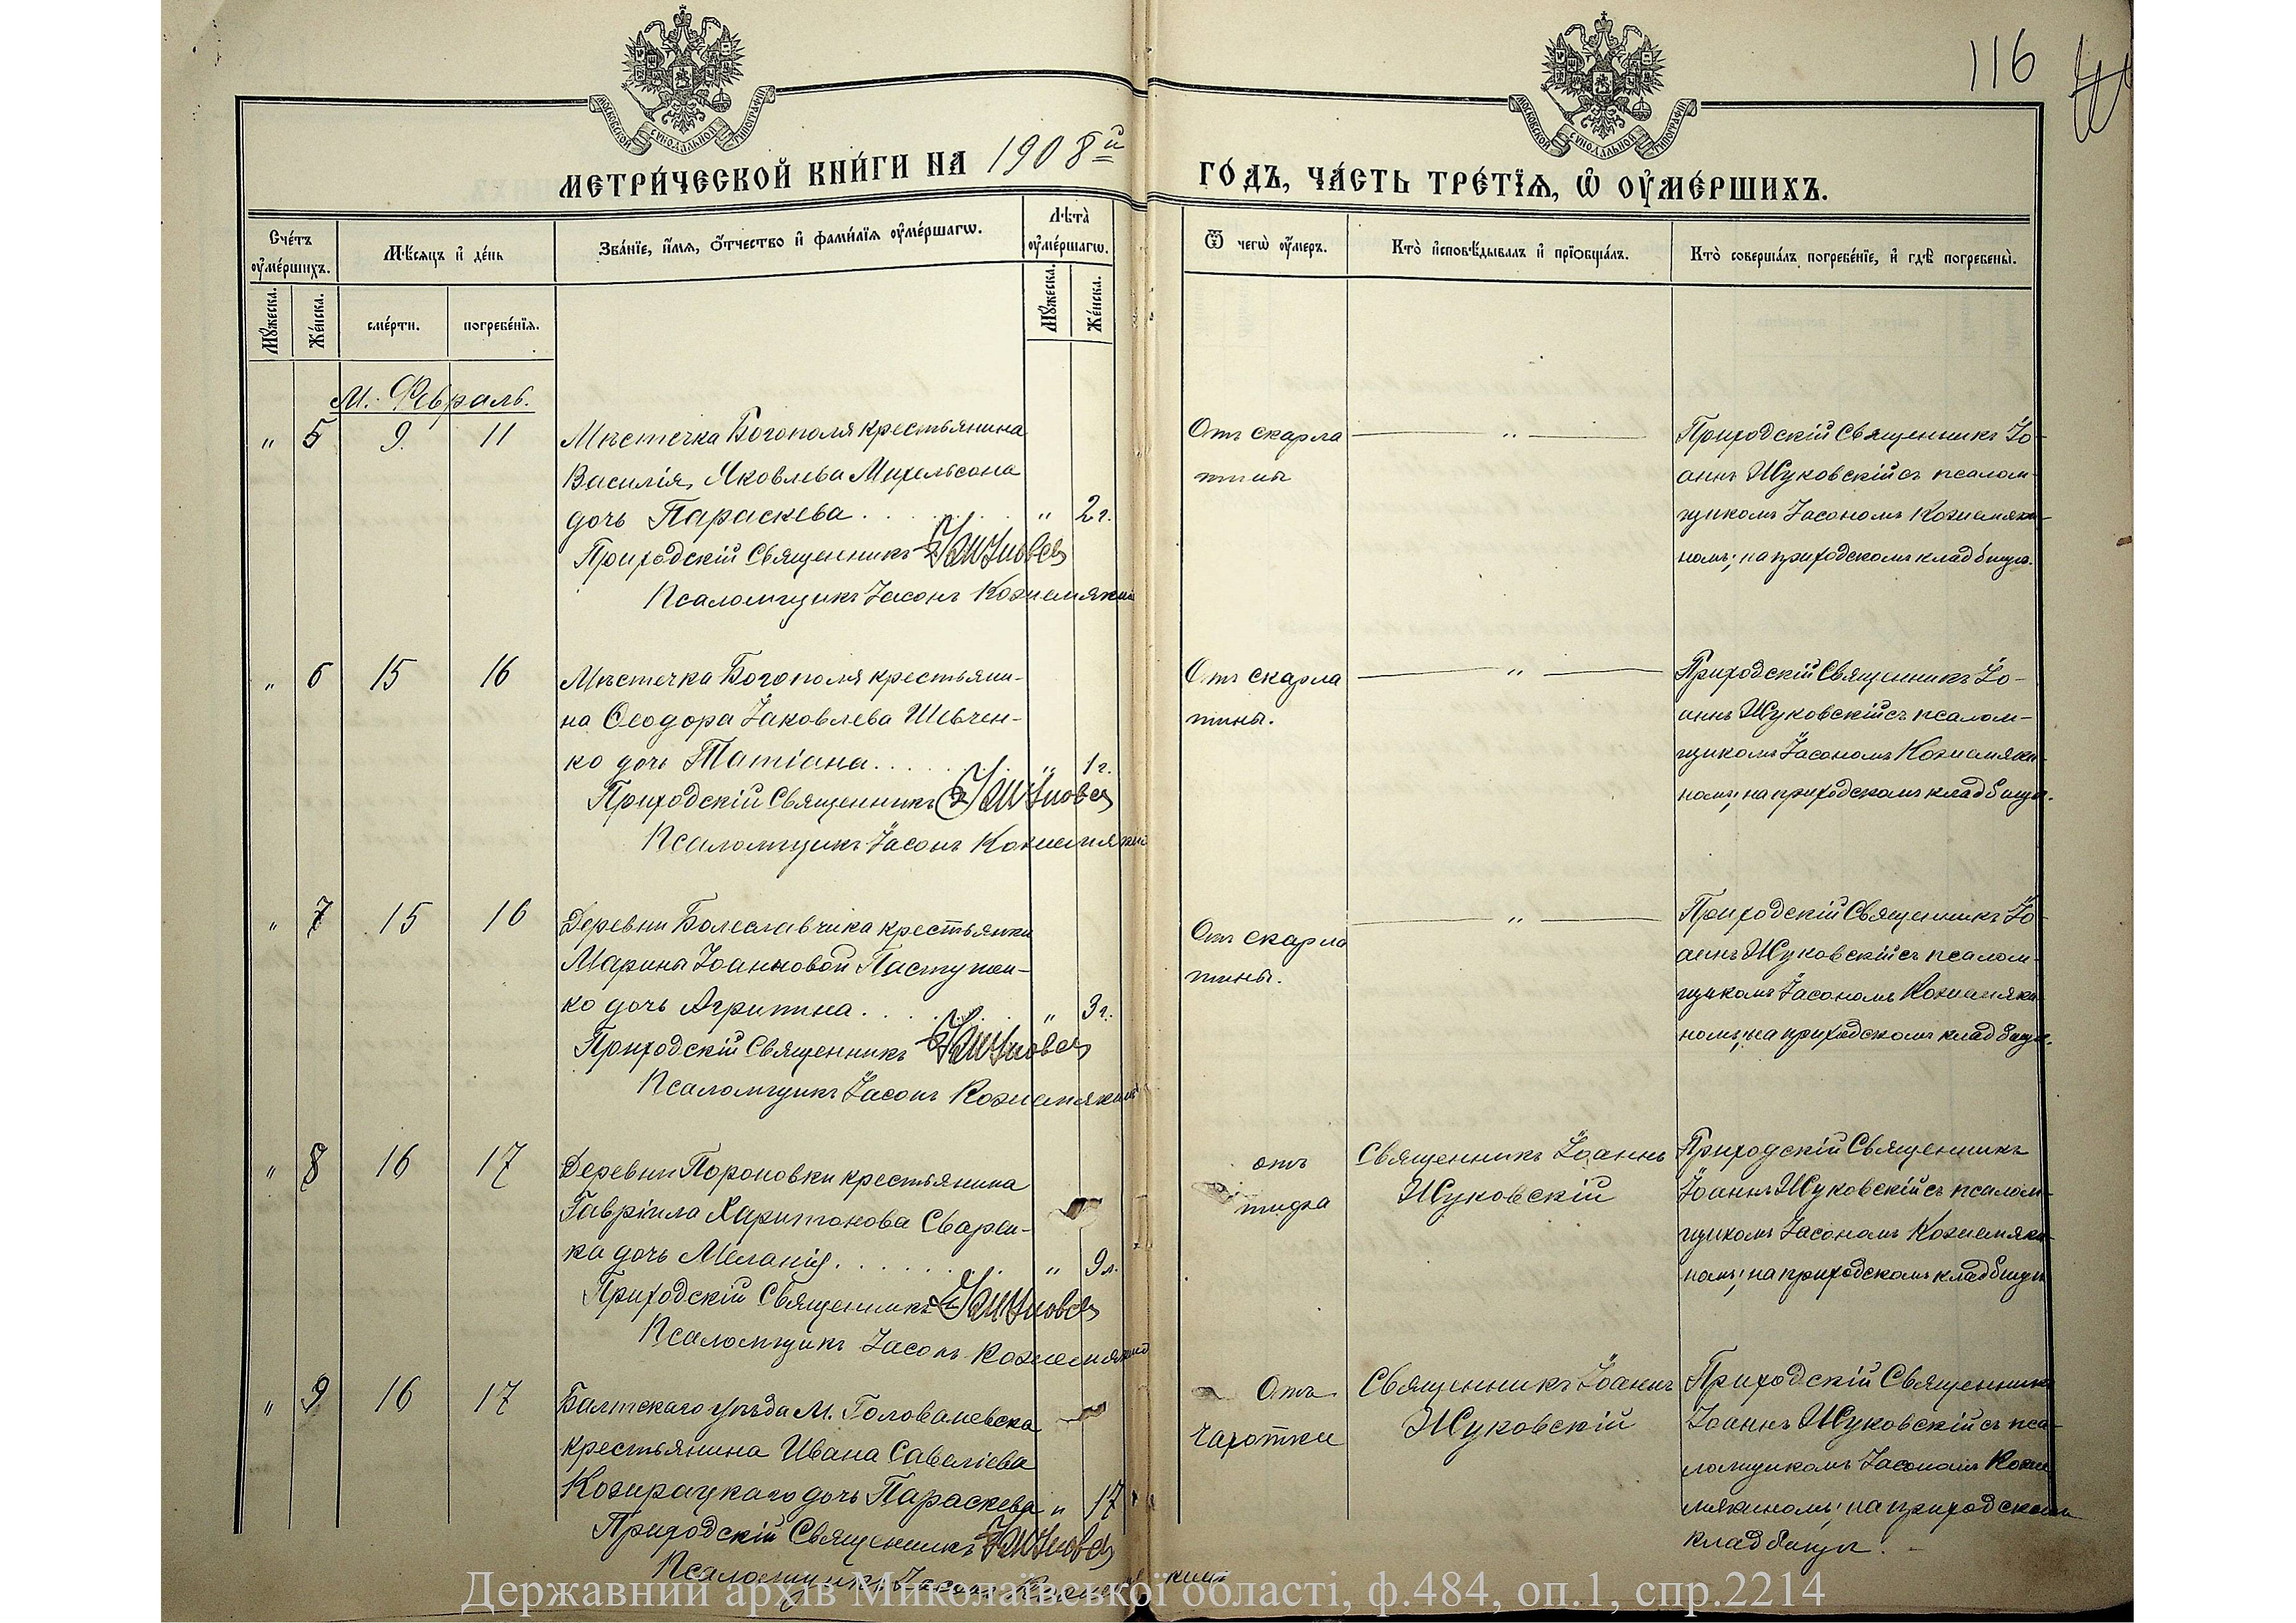 116
МОСКОВСКОЙ СѴНОДАЛЬНОЙ ТИПОГРАФІИ
МОСКОВСКОЙ СѴНОДАЛЬНОЙ ТИПОГРАФІИ
МЕТРИ́ЧЕСКОЙ КНИ́ГИ НА 1908й ГО́ДЪ, ЧА́СТЬ ТРЕ́ТЇѦ, Ѽ ОУ҆МЕ́РШИХЪ.
Сче́тъ оу҆ме́ршихъ.
Мꙋ́жеска.
Же́нска.
Мѣ́сяцъ и҆ де́нь
сме́рти.
погребе́нїѧ.
Зва́нїе, и҆́мѧ, ѻ҆́тчество и҆ фами́лїѧ оу҆ме́ршагѡ.
Лѣ́та̀ оу҆ме́ршагѡ.
Мꙋ́жеска.
Же́нска.
Ѿ чегѡ̀ оу҆́меръ.
Кто̀ и҆сповѣ́дывалъ и҆ прїѻбща́лъ.
Кто̀ соверша́лъ погребе́нїе, и҆ гдѣ̀ погребены̀.
М. Февраль.
" 5 9. 11 Мѣстечка Богополя крестьянина
Василія Яковлева Михельсона
дочь Параскева . . . " 2 г.
Приходскій Священникъ
Псаломщикъ Іасонъ Кожемякинъ
Отъ скарла
тины
"
Приходскій Священникъ Іо-
аннъ Жуковскій съ псалом-
щикомъ Іасономъ Кожемяки-
номъ; на приходскомъ кладбищѣ.
" 6 15 16 Мѣстечка Богополя крестьяни-
на Ѳеодора Іаковлева Шевчен-
ко дочь Татіана . . . " 1 г.
Приходскій Священникъ
Псаломщикъ Іасонъ Кожемякинъ
Отъ скарла
тины.
"
Приходскій Священникъ Іо-
аннъ Жуковскій съ псалом-
щикомъ Іасономъ Кожемяки-
номъ; на приходскомъ кладбищѣ.
" 7 15 16 Деревни Болеславчика крестьянки
Марины Іоанновой Пастушен-
ко дочь Агрипина . . . " 3 г.
Приходскій Священникъ
Псаломщикъ Іасонъ Кожемякинъ
Отъ скарла
тины.
"
Приходскій Священникъ Іо-
аннъ Жуковскій съ псалом-
щикомъ Іасономъ Кожемяки-
номъ; на приходскомъ кладбищѣ.
" 8 16 17 Деревни крестьянина
Гавріила Харитонова
дочь Меланія . . . " 9 л.
Приходскій Священникъ
Псаломщикъ Іасонъ Кожемякинъ
отъ
тифа
Священникъ Іоаннъ
Жуковскій
Приходскій Священникъ
Іоаннъ Жуковскій съ псалом-
щикомъ Іасономъ Кожемяки-
номъ; на приходскомъ кладбищѣ
" 9 16 17 Балтскаго уѣзда м. Голованевска
крестьянина Ивана Савеліева
дочь Параскева " 17
Приходскій Священникъ
Псаломщикъ Іасонъ
Отъ
чахотки
Священникъ Іоаннъ
Жуковскій
Приходскій Священникъ
Іоаннъ Жуковскій съ пса-
ломщикомъ Іасономъ Коже
мякиномъ; на приходскомъ
кладбищѣ.
Державний архів Миколаївської області, ф.484, оп.1, спр.2214